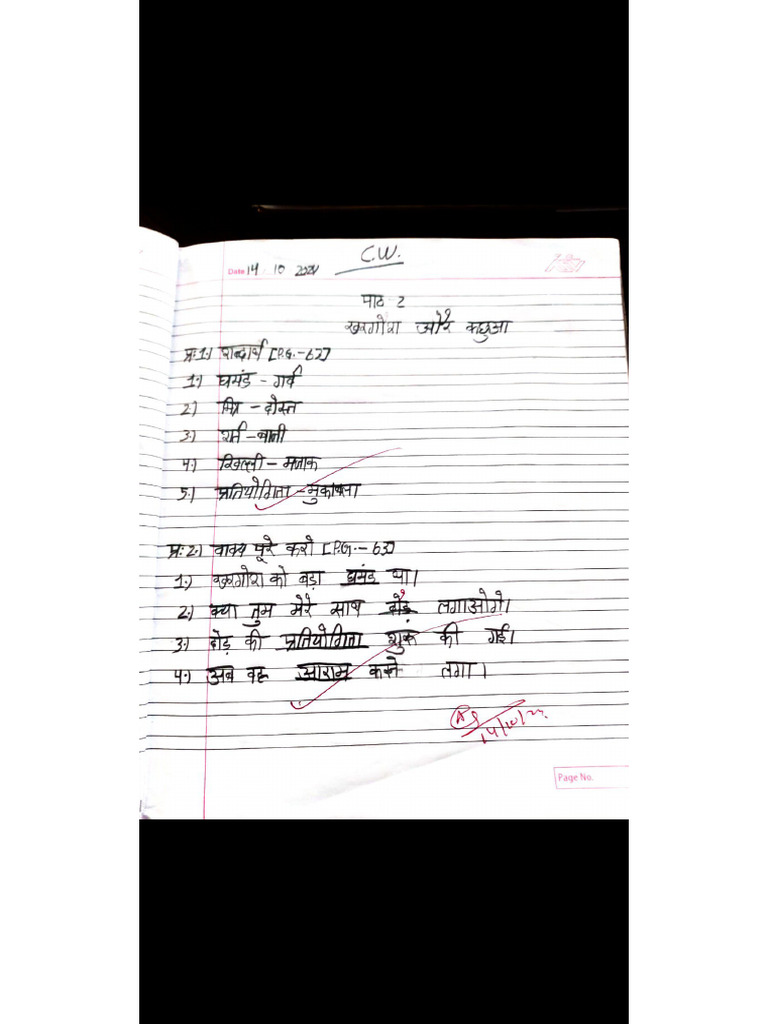 C.W.
Date 14 10 2024
पाठ - 2
खरगोश और कछुआ
प्र: 1.) शब्दार्थ [P.G. - 62]
1.) घमंड - गर्व
2.) मित्र - दोस्त
3.) शर्त - बाजी
4.) खिल्ली - मजाक
5.) प्रतियोगिता - मुकाबला
प्र: 2.) वाक्य पूरे करो [P.G. - 63]
1.) खरगोश को बड़ा घमंड था।
2.) क्या तुम मेरे साथ दौड़ लगाओगे।
3.) दोड़ की प्रतियोगिता शुरू की गई।
4.) अब वह आराम करने लगा।
14/10/24
Page No.